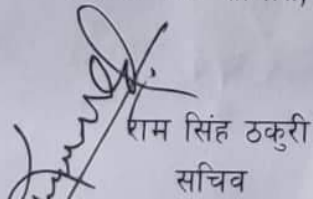 राम सिंह ठकुरी
सचिव